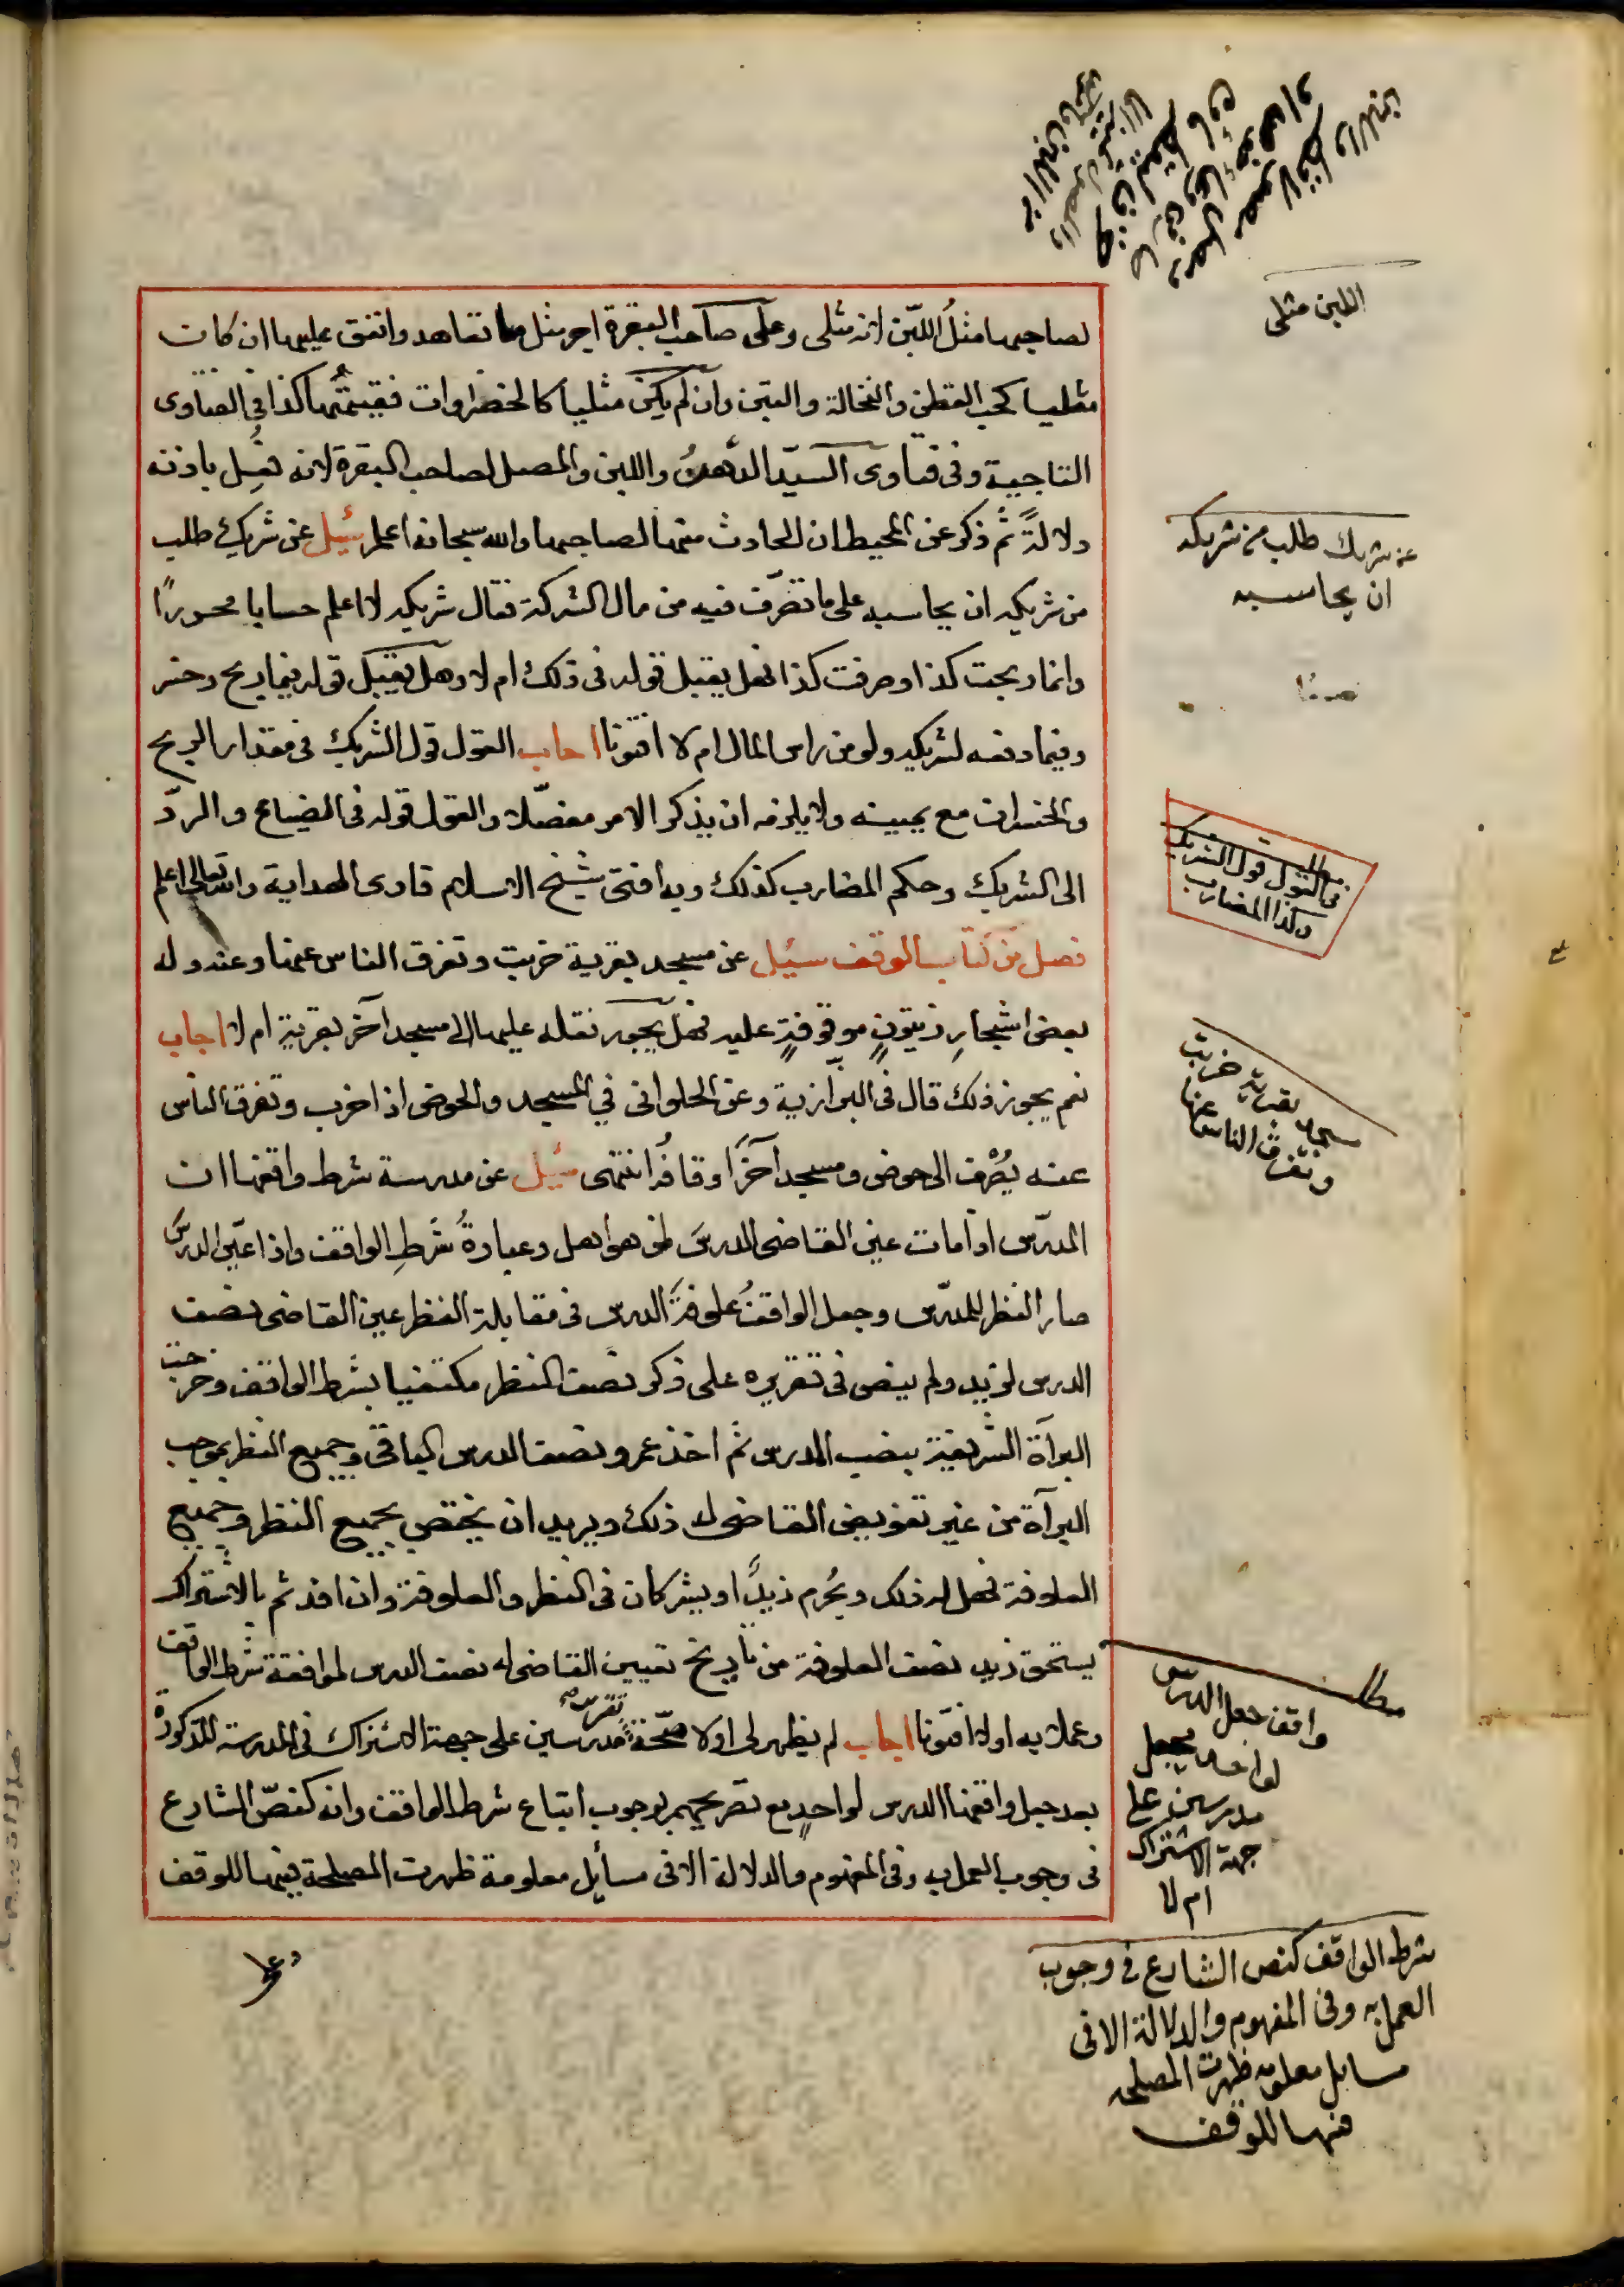 اللبن مثلى
لصاحبها مثلُ اللبن لانه مثلى وعلى صاحب البقرة اجر مثل ما تعاهد وانفق عليها ان كان
مثليا كحب القطن والنخالة والتبن وان لم يكن مثليا كالخضراوات فقيمتُها كذا فى الفتاوى
التاجية وفى فتاوى السيد الدهن واللبن والمصل لصاحب البقرة لانه فُعِل باذنه
دلالةً ثم ذكر عن المحيط ان الحادث منها لصاحبها والله سبحانه اعلم سئيل عن شريك طلب
من شريكه ان يحاسبه على ما تصرّف فيه من مال الشركة فقال شريكه لا اعلم حسابا محررًا
وانما ربحت كذا وصرفت كذا فهل يقبل قوله فى ذلك ام لا وهل يقبل قوله فيما ربح وخسر
وفيما دفعه لشريكه ولو من راس المال ام لا افتونا اجاب القول قول الشريك فى مقدار الربح
والخسران مع يمينه ولا يلزمه ان يذكر الامر مفصّلا والقول قوله فى الضياع والردّ
الى الشريك وحكم المضارب كذلك وبه افتى شيخ الاسلام قارى الهداية والله تعالى اعلم
فصل من كتاب الوقف سئيل عن مسجد بقرية خربت وتفرق الناس عنها وعنه وله
بعض اشجارِ زيتونٍ موقوفةٍ عليه فهل يجوز نقله عليها الى مسجد آخر بقرية ام لا اجاب
نعم يجوز ذلك قال فى البزّازية وعن الحلوانى في المسجد والحوض اذا خرب وتفرق الناس
عنه يُصْرف الى حوض ومسجد آخرَ اوقافُه انتهى سئيل عن مدرسة شرط واقفها ان
المدرّس اذا مات عين القاضى الدرسَ لمن هو اهل وعبارةُ شَرطِ الواقف واذا عيّن الدرسَ
صار النظر للمدرّس وجعل الواقفُ علوفةَ الدرس فى مقابلة النظر عين القاضى نصف
الدرس لزيد ولم ينص فى تقريره على ذكر نصف النظر مكتفيا بشرط الواقف وخرجت
البرآة الشريفة بنصب المدرس ثم اخذ عمرو نصف الدرس الباقى وجميع النظر بموجب
البرآة من غير تفويض القاضى له ذلك ويريد ان يختص بجميع النظر وجميع
العلوفة فهل له ذلك ويُحرم زيدٌ او يشركان فى النظر والعلوفة وان افدتم بالاشتراك
يستحق زيد نصف العلوفة من تاريخ تعيين القاضى له نصف الدرس لموافقة شرط الواقف
وعملا به اولا افتونا اجاب لم يظهر لى اولا صحّة تقرير مدرسين على جهة الاشتراك فى المدرسة المذكورة
بعد جعل واقفها الدرس لواحدٍ مع تصريحهم بوجوب اتباع شرط الواقف وانه كنصّ الشارع
فى وجوب العمل به وفى المفهوم والدلالة الا فى مسائل معلومة ظهرت المصلحة فيها للوقف
عن شريك طلب من شريكه
ان يحاسبه
مطلب
فى القول قول الشريك
وكذا المضارب
مسجد بقرية خربت
وتفرق الناس عنها
مطلب
واقف جعل الدرس
لواحد يجعل
مدرسين على
جهة الاشتراك
ام لا
شرط الواقف كنص الشارع فى وجوب
العمل به وفى المفهوم والدلالة الا فى
مسايل معلومه ظهرت المصلحه
فيها للوقف